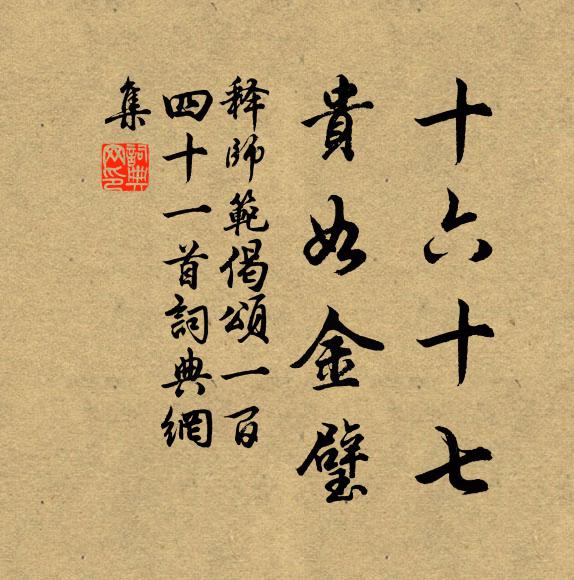 十六十七
貴如金璧
释師範偈頌一百
四十一首詞典網
集
詞典网印